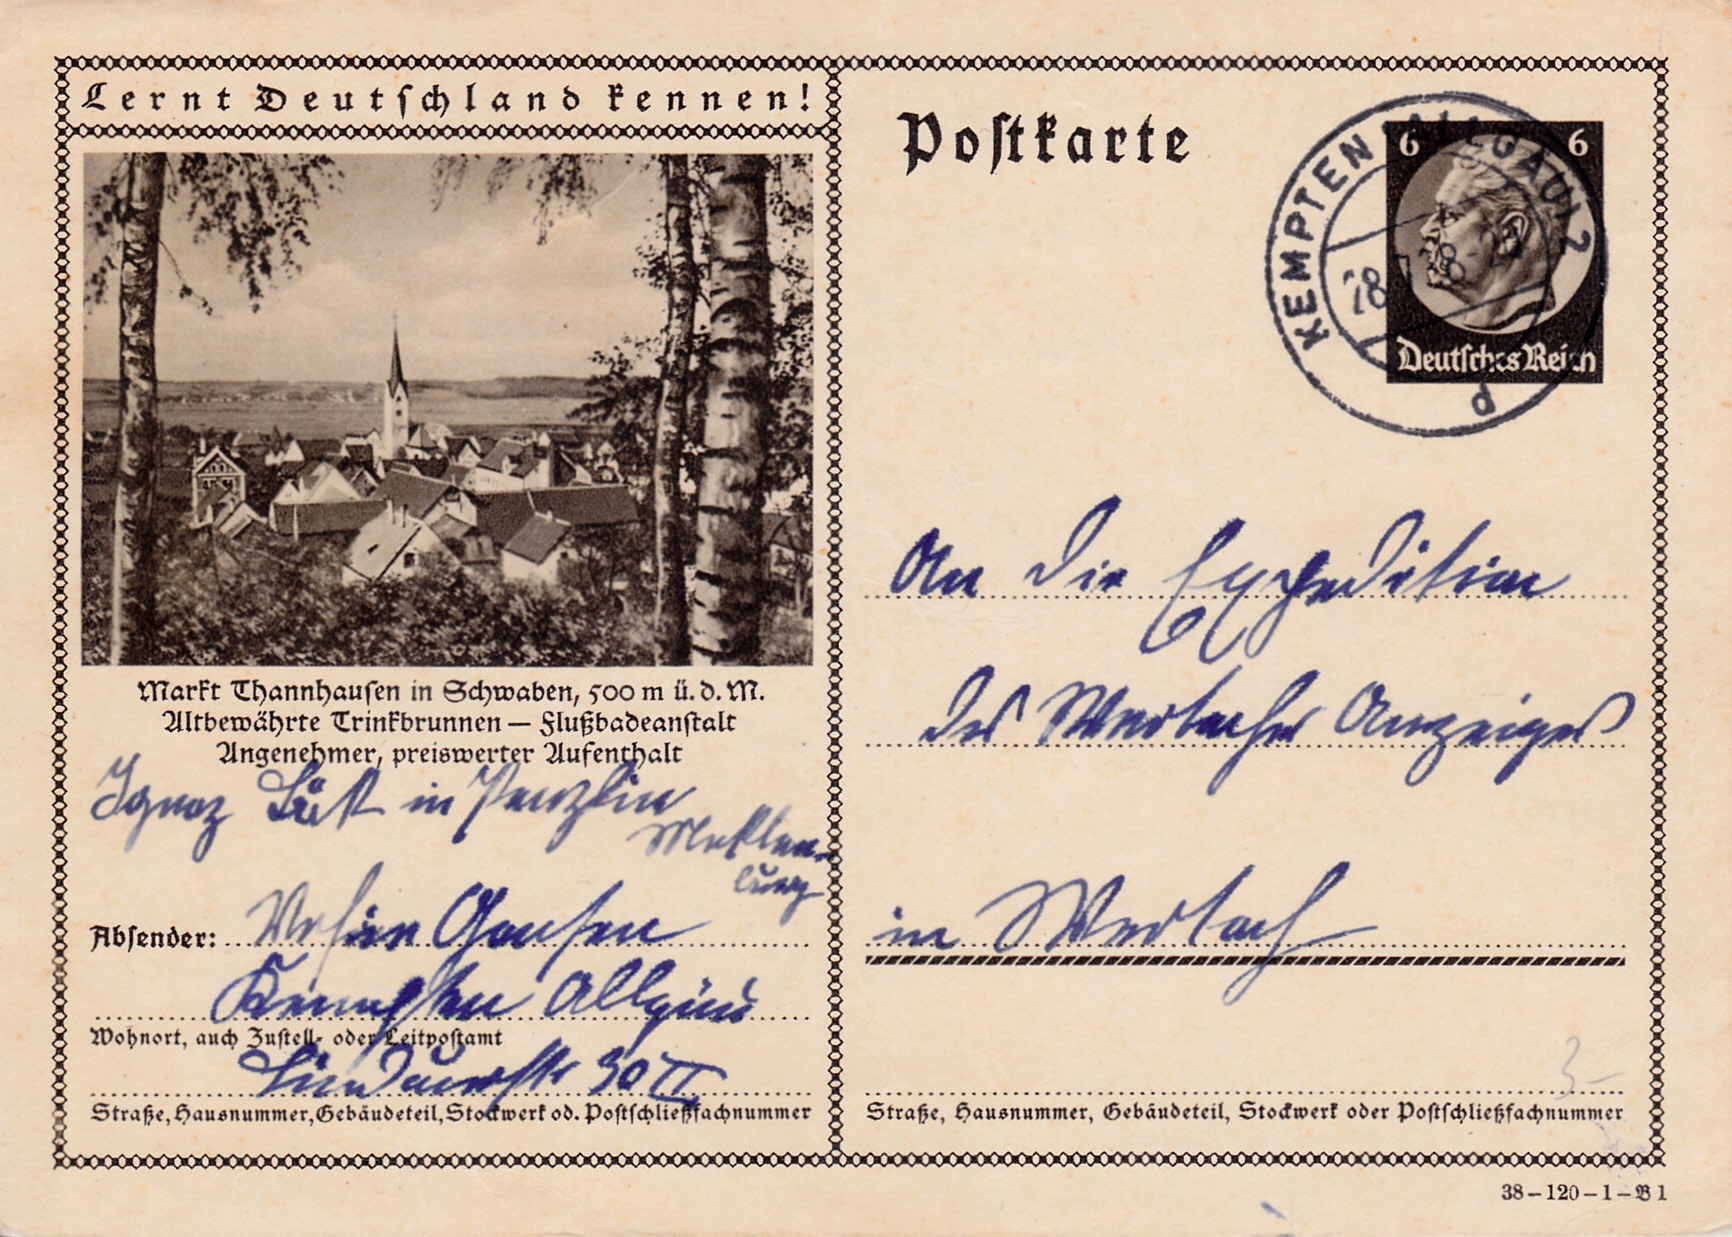 Lernt Deutschland kennen!
Markt Thannhausen in Schwaben, 500 m ü. d. M.
Altbewährte Trinkbrunnen — Flußbadeanstalt
Angenehmer, preiswerter Aufenthalt
Ignaz in Penzlin
Meklen-
burg
Absender:
Kempten Allgäu
Wohnort, auch Zustell- oder Leitpostamt
Lindauerstr 30 II
Straße, Hausnummer, Gebäudeteil, Stockwerk od. Postschließfachnummer
Postkarte
6 6
Deutsches Reich
KEMPTEN (ALLGÄU) 2
28
d
An die Expedition
des Wertacher Anzeiger
in Wertach
3-
Straße, Hausnummer, Gebäudeteil, Stockwerk oder Postschließfachnummer
38-120-1-B 1